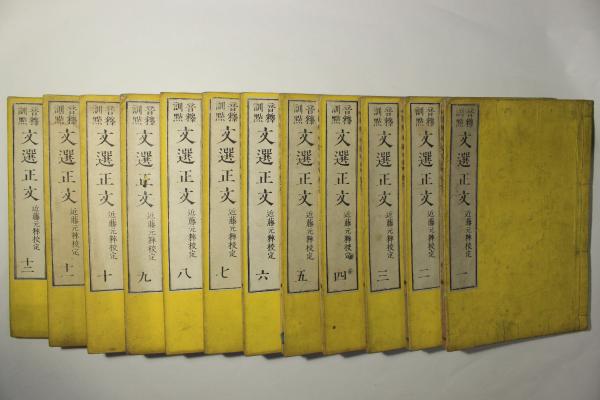 音釋
訓點
文選正文
近藤元粹校定
一
音釋
訓點
文選正文
近藤元粹校定
二
音釋
訓點
文選正文
近藤元粹校定
三
音釋
訓點
文選正文
近藤元粹校定
四
音釋
訓點
文選正文
近藤元粹校定
五
音釋
訓點
文選正文
近藤元粹校定
六
音釋
訓點
文選正文
近藤元粹校定
七
音釋
訓點
文選正文
近藤元粹校定
八
音釋
訓點
文選正文
近藤元粹校定
九
音釋
訓點
文選正文
近藤元粹校定
十
音釋
訓點
文選正文
近藤元粹校定
十一
音釋
訓點
文選正文
近藤元粹校定
十二